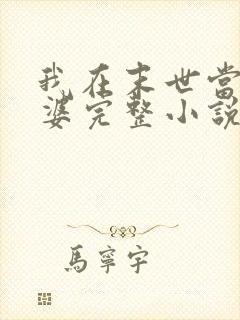 我在末世當
婆完整小説
馬寧宇